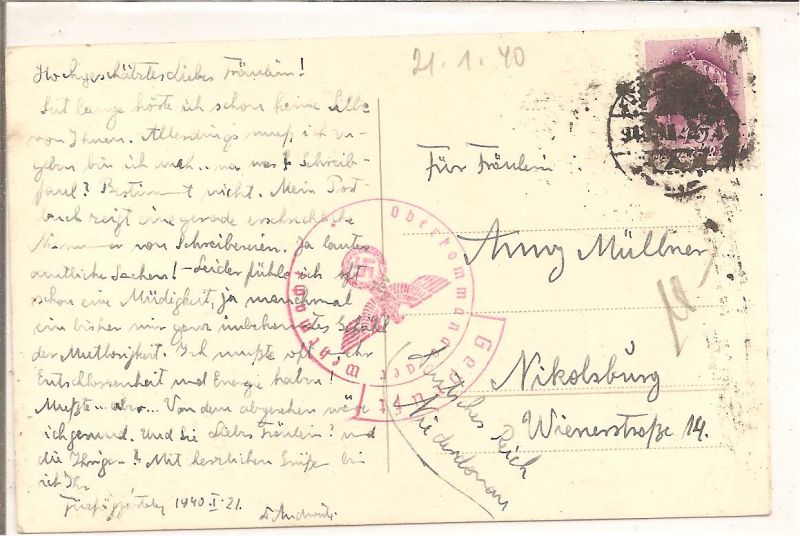 21.1.40
Hochgeschätztes liebes Fräulein!
Seit lange hörte ich schon keine Silbe
von Ihnen. Allerdings muß ich zu-
geben bin ich auch.. na was? Schreib-
faul? Bestimmt nicht. Mein Post-
buch zeigt eine gerade erschreckliche
Nummer von Schreibereien. Ja lauter
amtliche Sachen! - Leider fühle ich oft
schon eine Müdigkeit, ja manchmal
ein bisher mir ganz unbekanntes Gefühl
der Mutlosigkeit. Ich müßte oft sehr
Entschlossenheit und Energie haben!
Müßte... aber... Von dem abgesehen wäre
ich gesund. Und Sie liebes Fräulein? und
die Ihrigen? Mit herzlichen Grüßen bin
ich Ihr
1940.I.21.
Für Fräulein
Anny Müllner
Nikolsburg
Wienerstraße 14.
Deutsches Reich
Niederdonau
Oberkommando der Wehrmacht
Geprüft